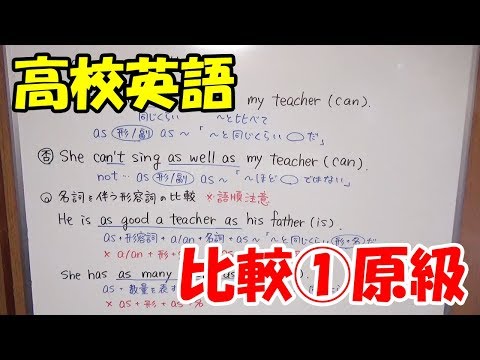 高校英語
my teacher (can).
同じくらい ～と比べて
as 形/副 as ～「～と同じくらい ○ だ」
否 She can't sing as well as my teacher (can).
not … as 形/副 as ～「～ほど ○ ではない」
名詞を伴う形容詞の比較 ×語順注意
He is as good a teacher as his father (is).
as + 形容詞 + a/an + 名詞 + as ～「～と同じくらい 形+名 だ
× a/an + 形 +
She has as many
as + 数量を表す
× as + 形 + as + 名
比較①原級